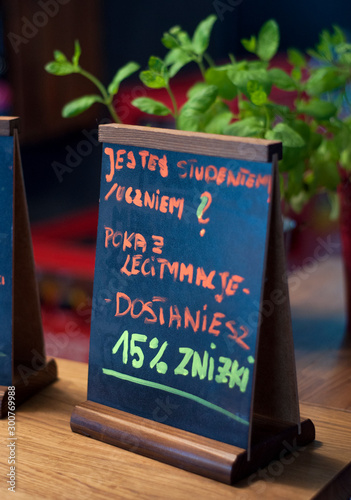 JESTEŚ STUDENTEM
/UCZNIEM ?
POKAŻ
LEGITYMACJĘ-
-DOSTANIESZ
15% ZNIŻKI
300769988